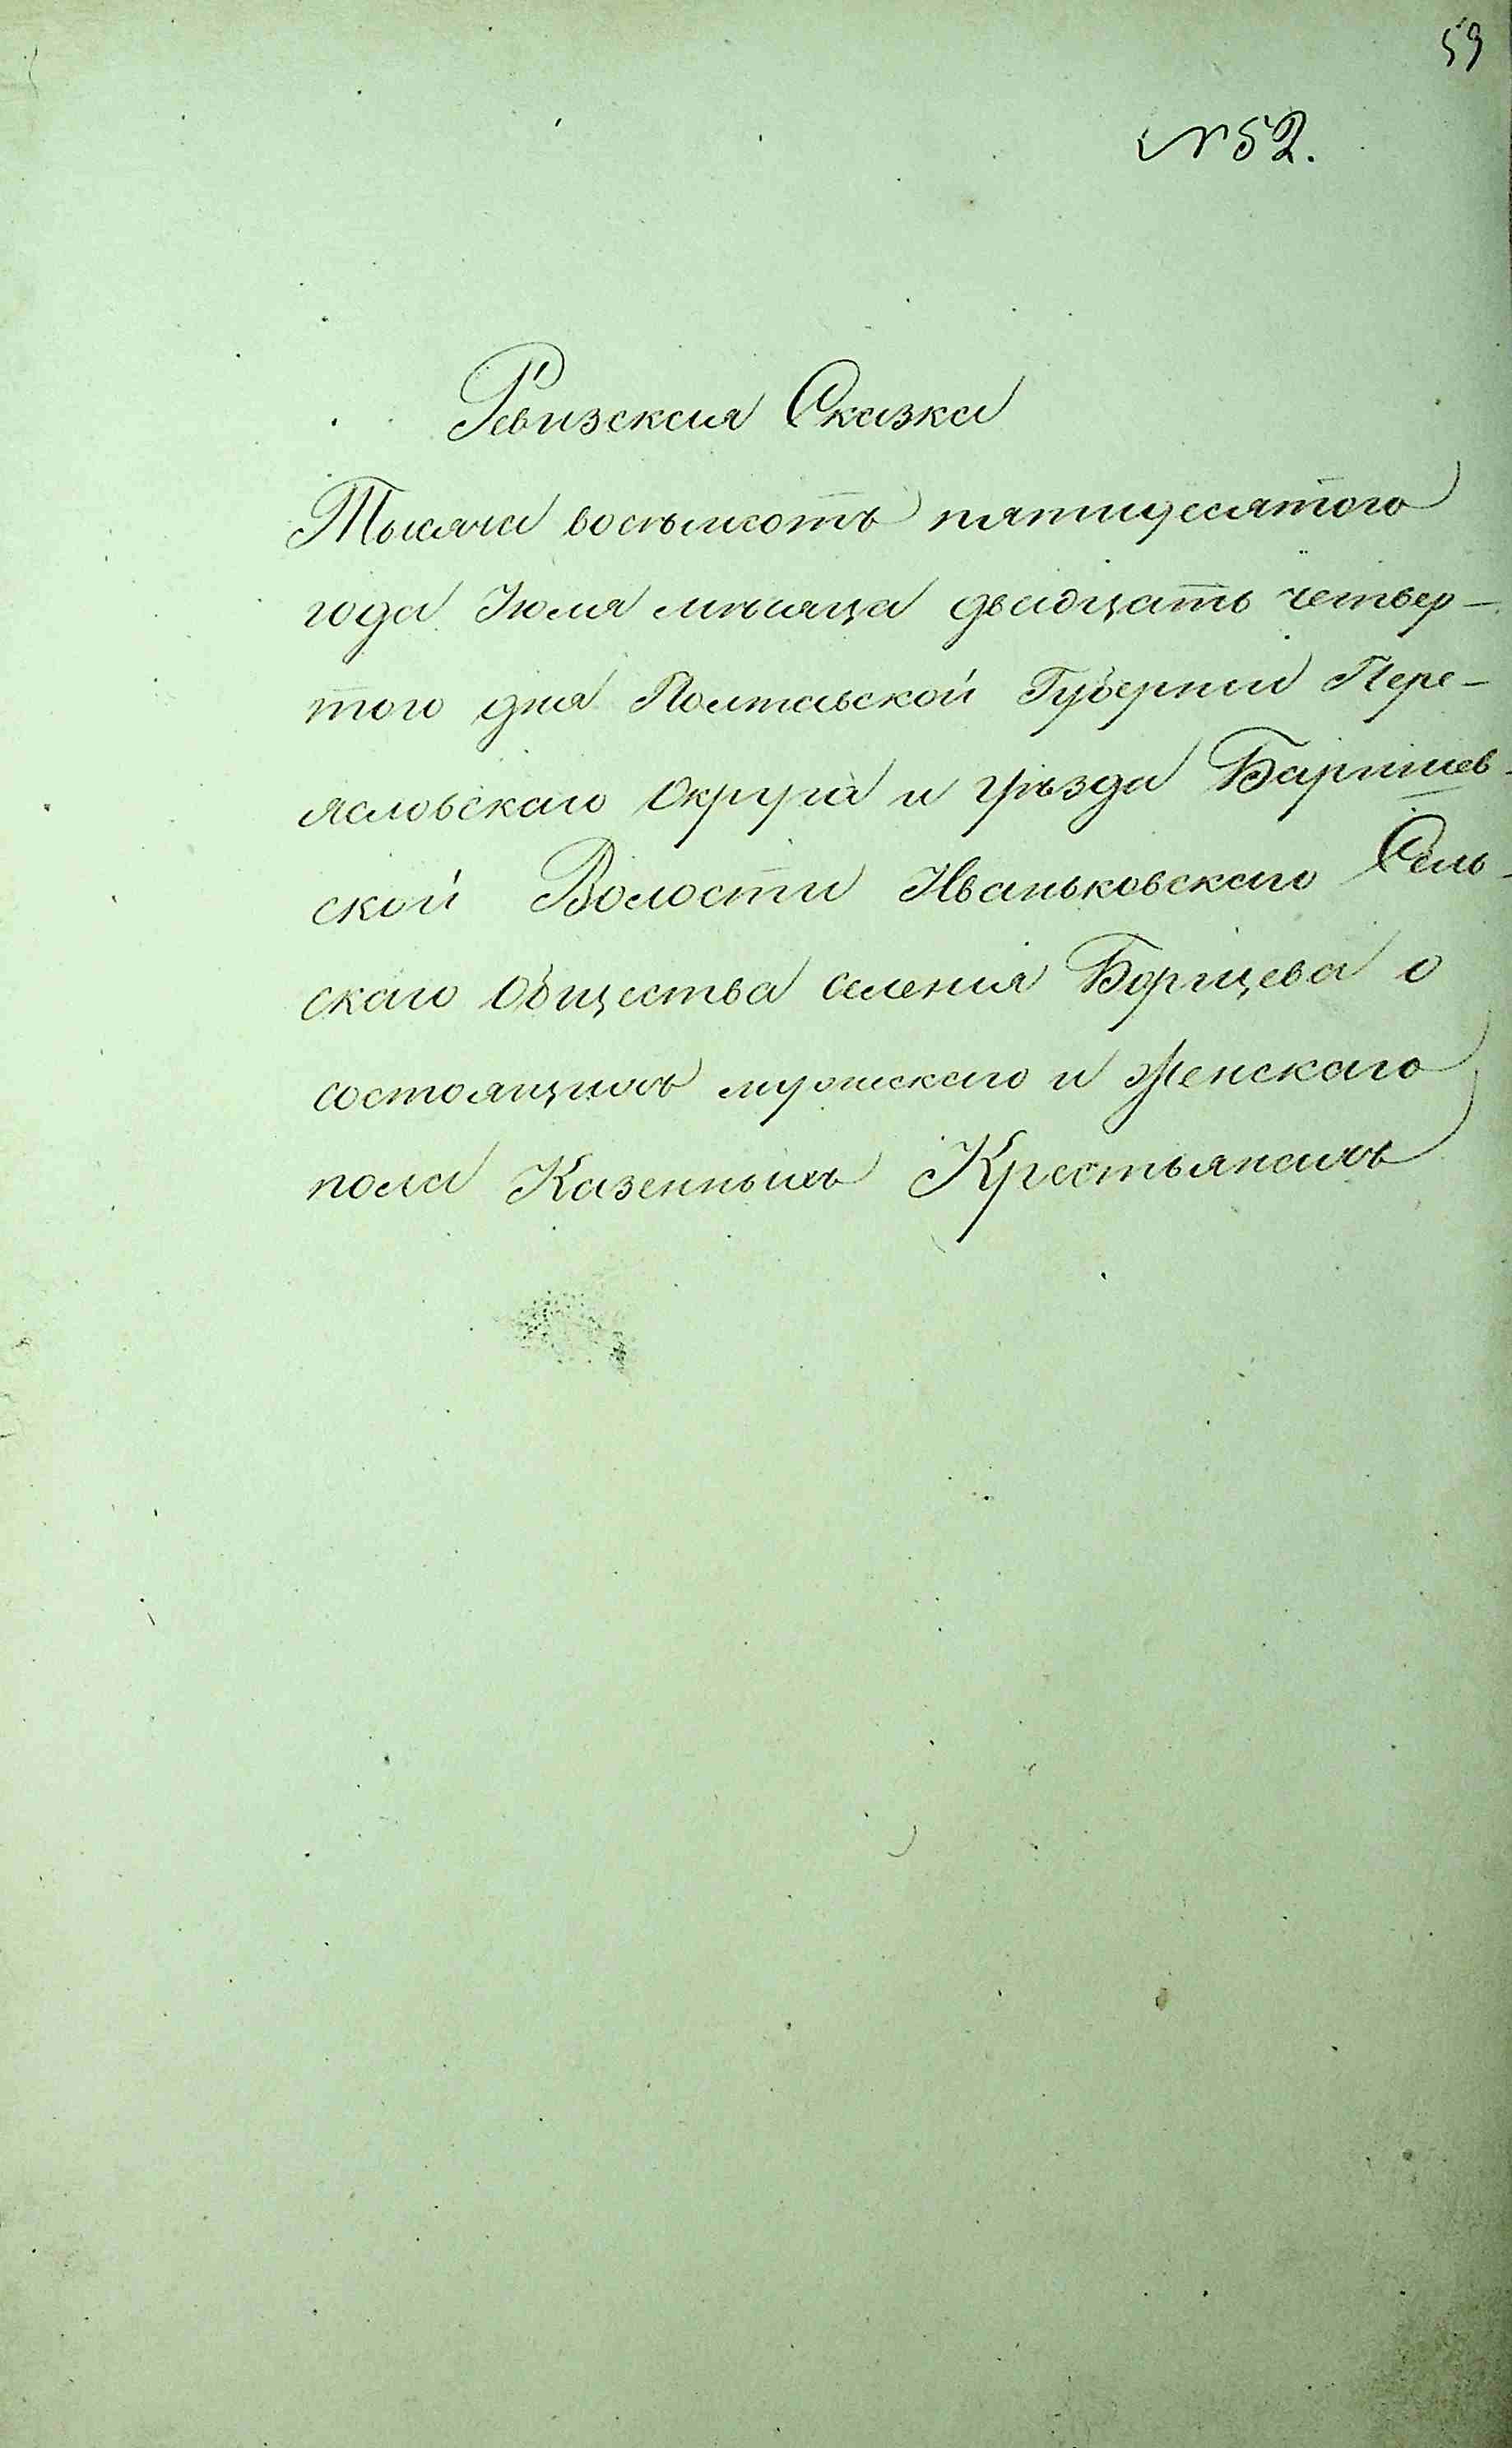 59
№ 52.
Ревизская Сказка
Тысяча восемьсотъ пятидесятого
года Іюля мѣсяца двадцать четвер-
того дня Полтавской Губерніи Пере-
яславскаго Округа и Уѣзда Баришев-
ской Волости Иваньковскаго Сель-
скаго Общества селенія Борщева о
состоящихъ мужескаго и Женскаго
пола Казенныхъ Крестьянахъ